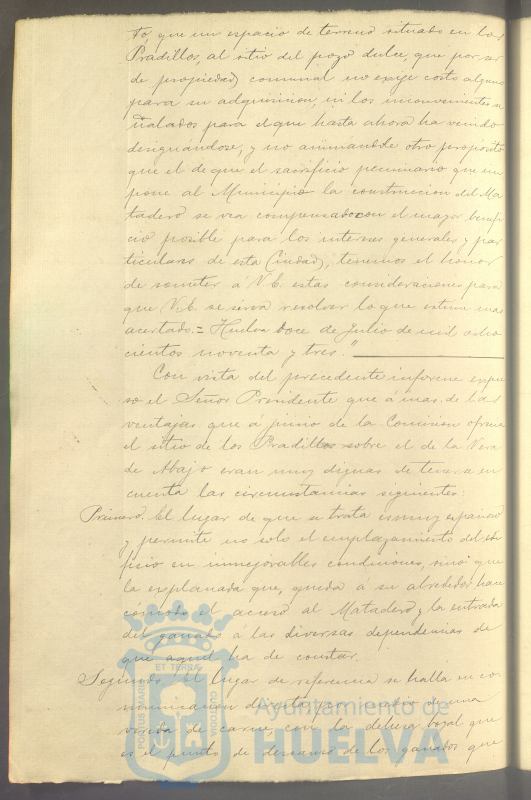 to, que un espacio de terreno situado en los
Pradillos, al sitio del pozo dulce, que por ser
de propiedad comunal no exige costo alguno
para su adquisicion, ni los inconvenientes se
ñalados para el que hasta ahora ha venido
designándose, y no animandole otro propósito
que el de que el sacrificio pecuniario que im
pone al Municipio la construccion del Ma
tadero se vea compensado con el mayor benefi
cio posible para los interses generales y par
ticulares de esta Ciudad, tenemos el honor
de someter á V.E. estas consideraciones para
que V.E. se sirva resolver lo que estime mas
acertado.= Huelva doce de Julio de mil ocho
cientos noventa y tres."
Con vista del precedente informe expu
so el Señor Presidente que á mas de las
ventajas que a juicio de la Comision ofrece
el sitio de los Pradillos sobre el de la Vera
de Abajo eran muy dignas de tener en
cuenta las circunstancias siguientes:
Primero. El lugar de que se trata es muy espacioso
y permite no solo el emplazamiento del edi
ficio en inmejorables condiciones, sinó que
la explanada que, queda á su alrededor hace
cómodo el acceso al Matadero y la entrada
del ganado á las diversas dependencias de
que aquel ha de constar.
Segundo. El lugar de referencia se halla en co-
municacion directa, por medio de una
vereda de carne, con la dehesa boyal que
es el punto de descanso de los ganados que
Ayuntamiento de
HUELVA
PORTUS MARIS
ET TERRÆ
CUSTODIA